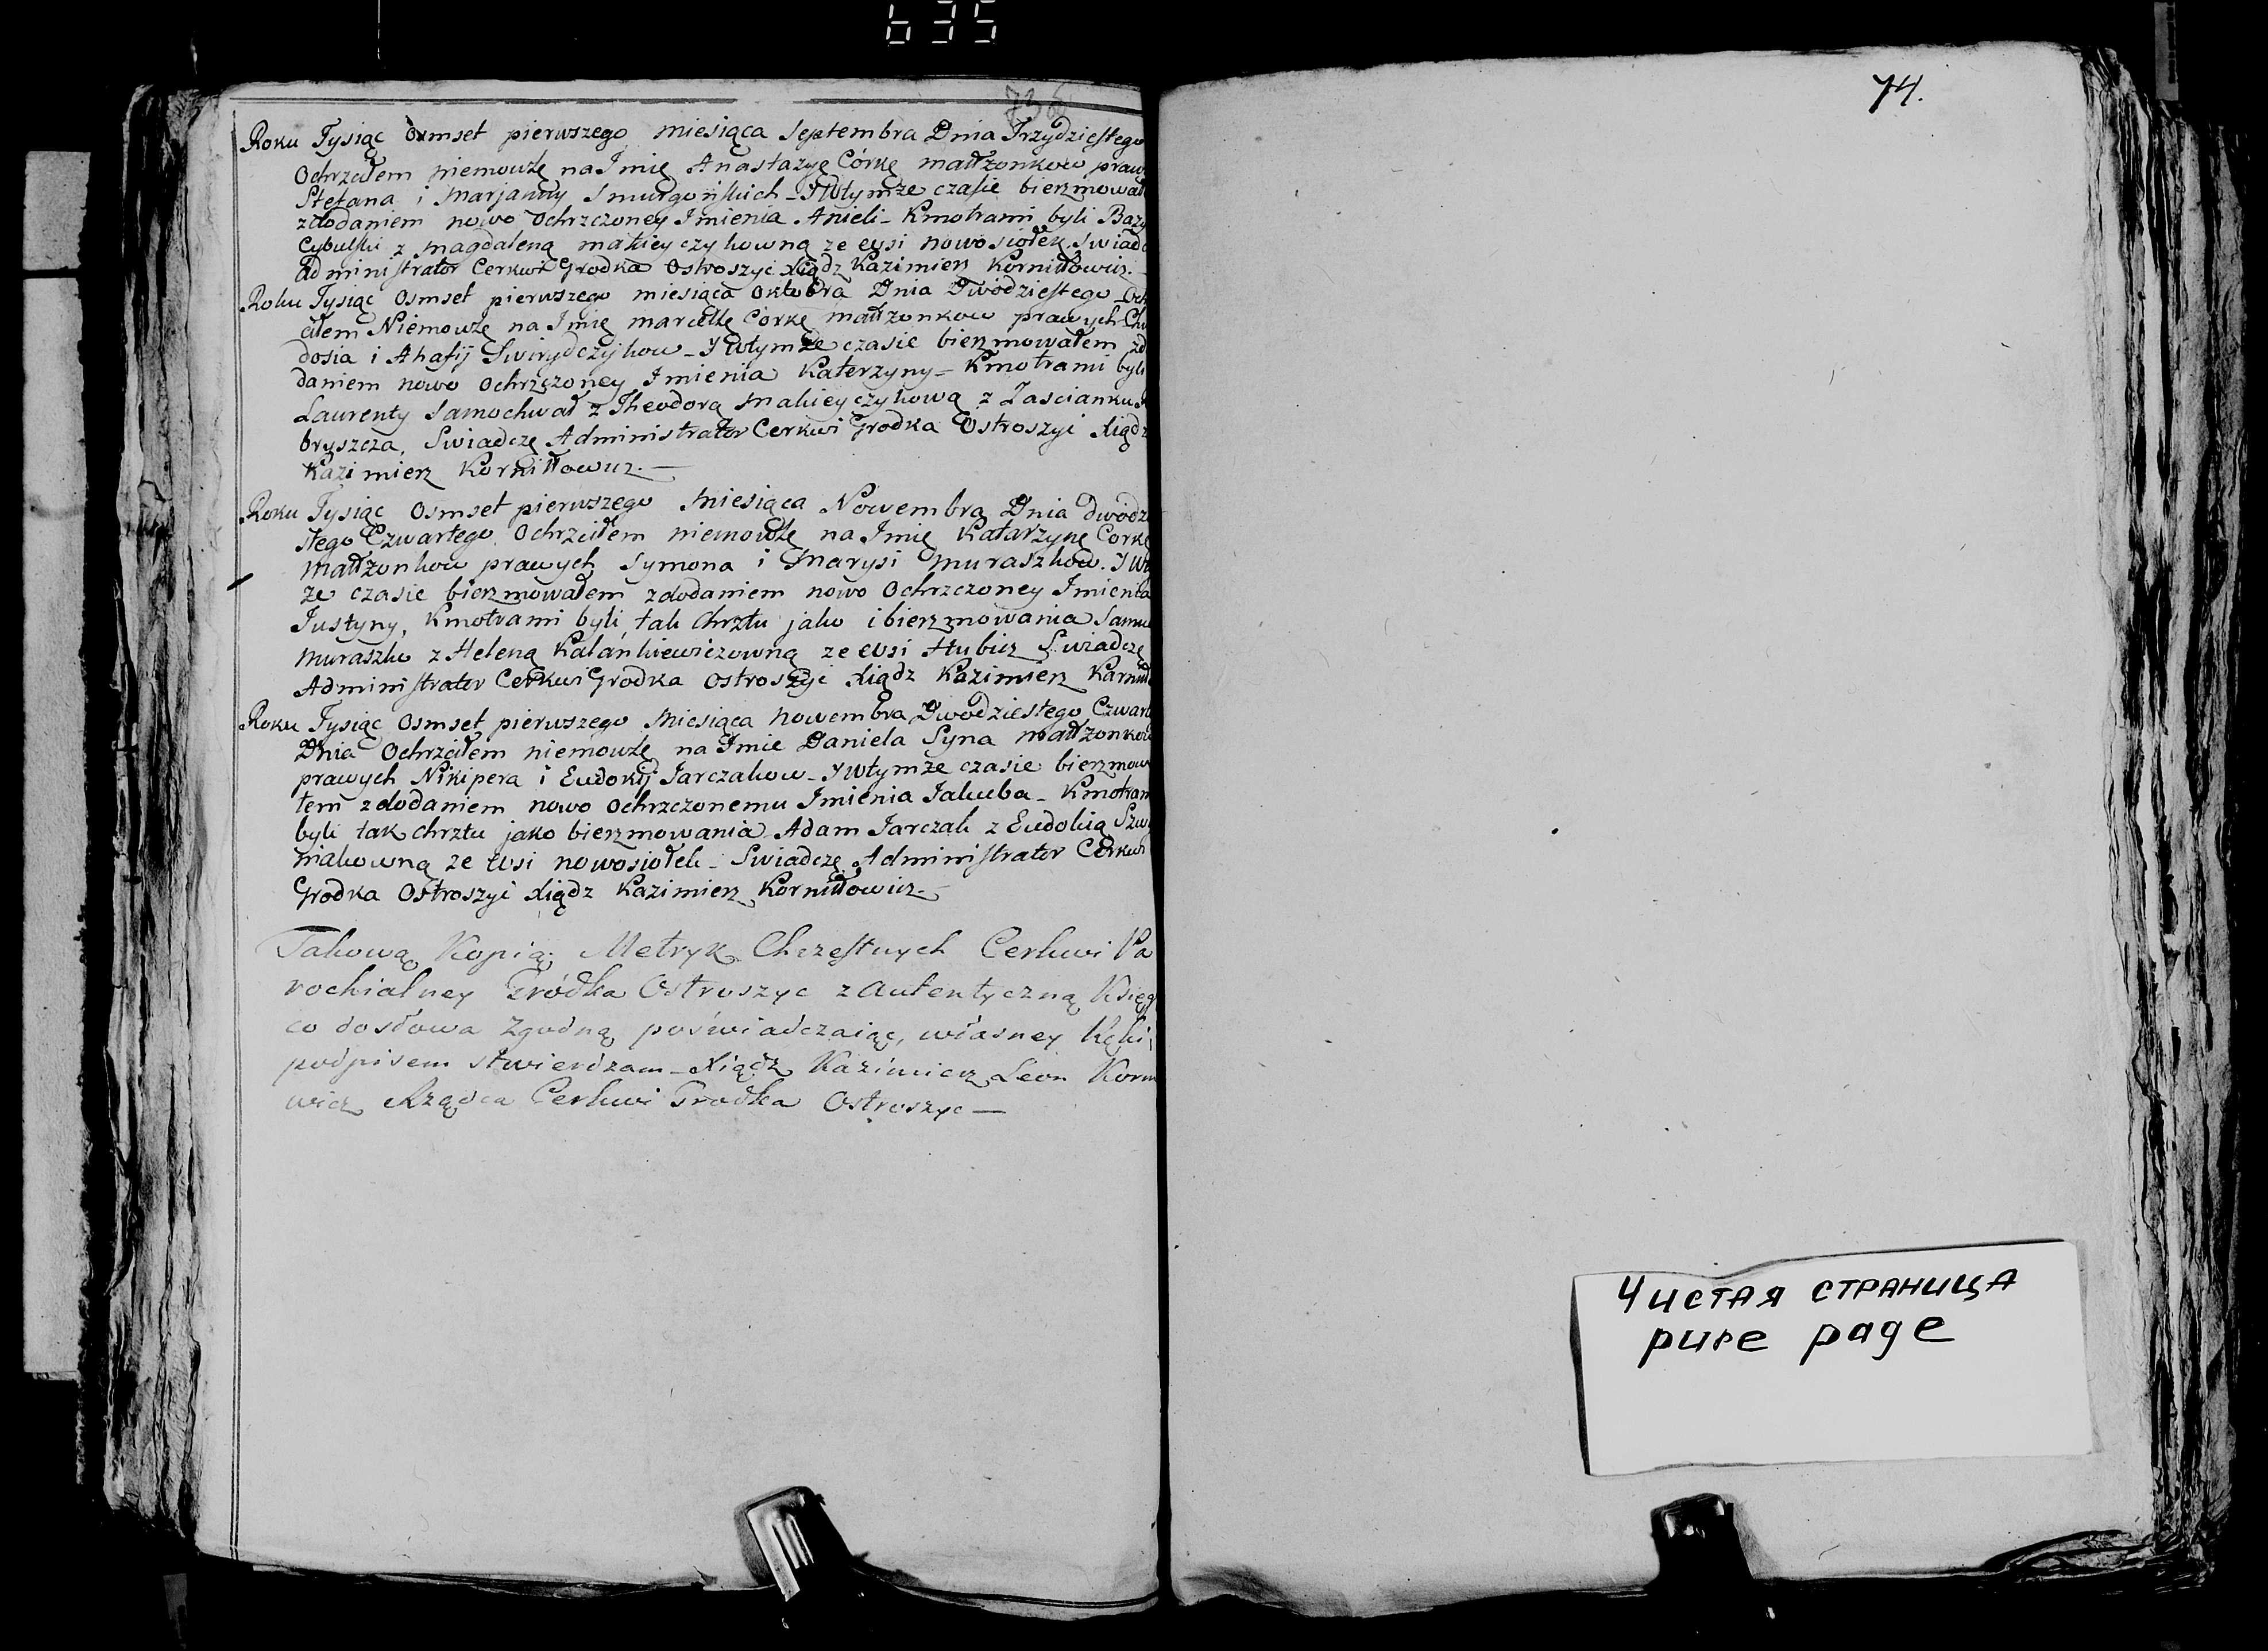 635
73 об
Roku Tysiąc Osmset pierwszego miesiąca Septembra Dnia Trzydziestego
Ochrzciłem niemowlę na Imię Anastazyę Córkę małżonkow praw
Stefana i Marjanny Smurgońskich - Y wtymże czasie bierzmował
zdodaniem nowo Ochrzczoney Imienia Anieli - Kmotrami byli Bazy
Cybulski z Magdaleną makieyczykowną ze wsi nowosiołek. Swiadc
Administrator Cerkwi Grodka Ostroszyc Xiądz Kazimierz Korniłłowicz. -
Roku Tysiąc Osmset pierwszego miesiąca Oktobra Dnia Dwódziestego Och
ciłem Niemowlę na Imię marcellę Córkę małżonkow prawych Chw
dosia i Ahafij Swirydczykow - Y wtymże czasie bierzmowałem zd
daniem nowo Ochrzczoney Imienia Katerzyny - Kmotrami byli
Laurenty Samochwał z Theodorą Makieyczykową z Zascianku
bryszcza, Swiadczę Administrator Cerkwi Grodka Ostroszyc Xiądz
Kazimierz Korniłłowicz. -
Roku Tysiąc Osmset pierwszego Miesiąca Nowembra Dnia dwódz
stego Czwartego Ochrzciłem niemowlę na Imię Katarzynę Corkę
małżonkow prawych Symona i Marysi Muraszkow. Y wty
że czasie bierzmowałem zdodaniem nowo Ochrzczoney Imienia
Justyny, Kmotrami byli, tak Chrztu jako i bierzmowania Samu
Muraszko z Heleną Kalankiewiczowną ze wsi Hubicz Swiadczę
Administrator Cerkwi Grodka Ostroszyc Xiądz Kazimierz Karniłł
Roku Tysiąc Osmset pierwszego Miesiąca nowembra Dwodziestego Czwart
Dnia Ochrzciłem niemowlę na Imie Daniela Syna małżonkow
prawych Nikipera i Eudokij Jarczakow - Y wtymże czasie bierzmow
łem zdodaniem nowo Ochrzczonemu Imienia Jakuba - Kmotram
byli tak chrztu jako bierzmowania Adam Jarczak z Eudokią Szw
niakowną ze wsi nowosiołek - Swiadczę Administrator Cerkwi
Grodka Ostroszyc Xiądz Kazimierz Korniłłowicz. -
Takową Kopią Metryk Chrzestnych Cerkwi Pa
rochialney Gródka Ostroszyc z Autentyczną Księg
co dosłowa Zgodną poświadczaiąc, własney Ręki
podpisem stwierdzam - Xiądz Kazimierz Leon Korni
wicz Rządca Cerkwi Grodka Ostroszyc -
74.
Чистая страница
pure page